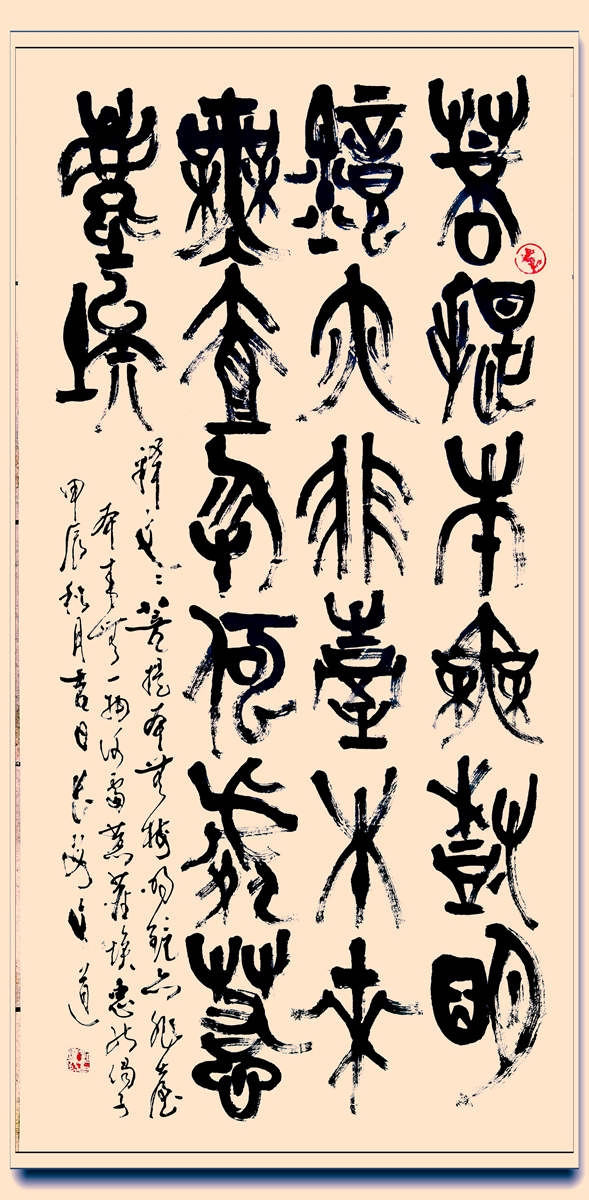 菩提本無樹明
鏡亦非臺本來
無壹物何處惹
塵埃
釋文：菩提本無樹明鏡亦非臺
本来無一物何處惹塵埃惠能偈子
甲辰秋月吉日